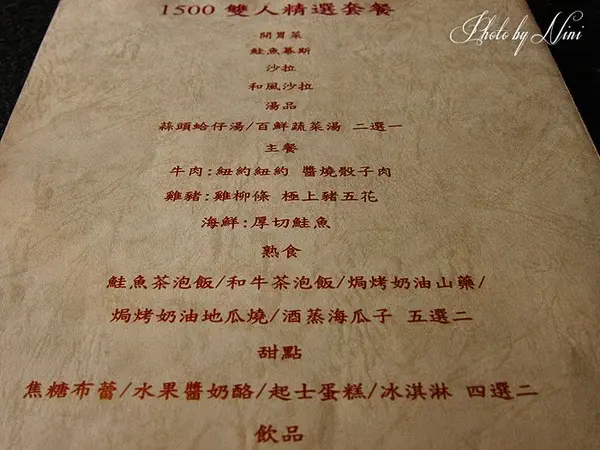 1500 雙人精選套餐
Photo by Nini
開胃菜
鮭魚慕斯
沙拉
和風沙拉
湯品
蒜頭蛤仔湯/百鮮蔬菜湯 二選一
主餐
牛肉:紐約紐約 醬燒骰子肉
雞豬:雞柳條 極上豬五花
海鮮:厚切鮭魚
熟食
鮭魚茶泡飯/和牛茶泡飯/焗烤奶油山藥/
焗烤奶油地瓜燒/酒蒸海瓜子 五選二
甜點
焦糖布蕾/水果醬奶酪/起士蛋糕/冰淇淋 四選二
飲品